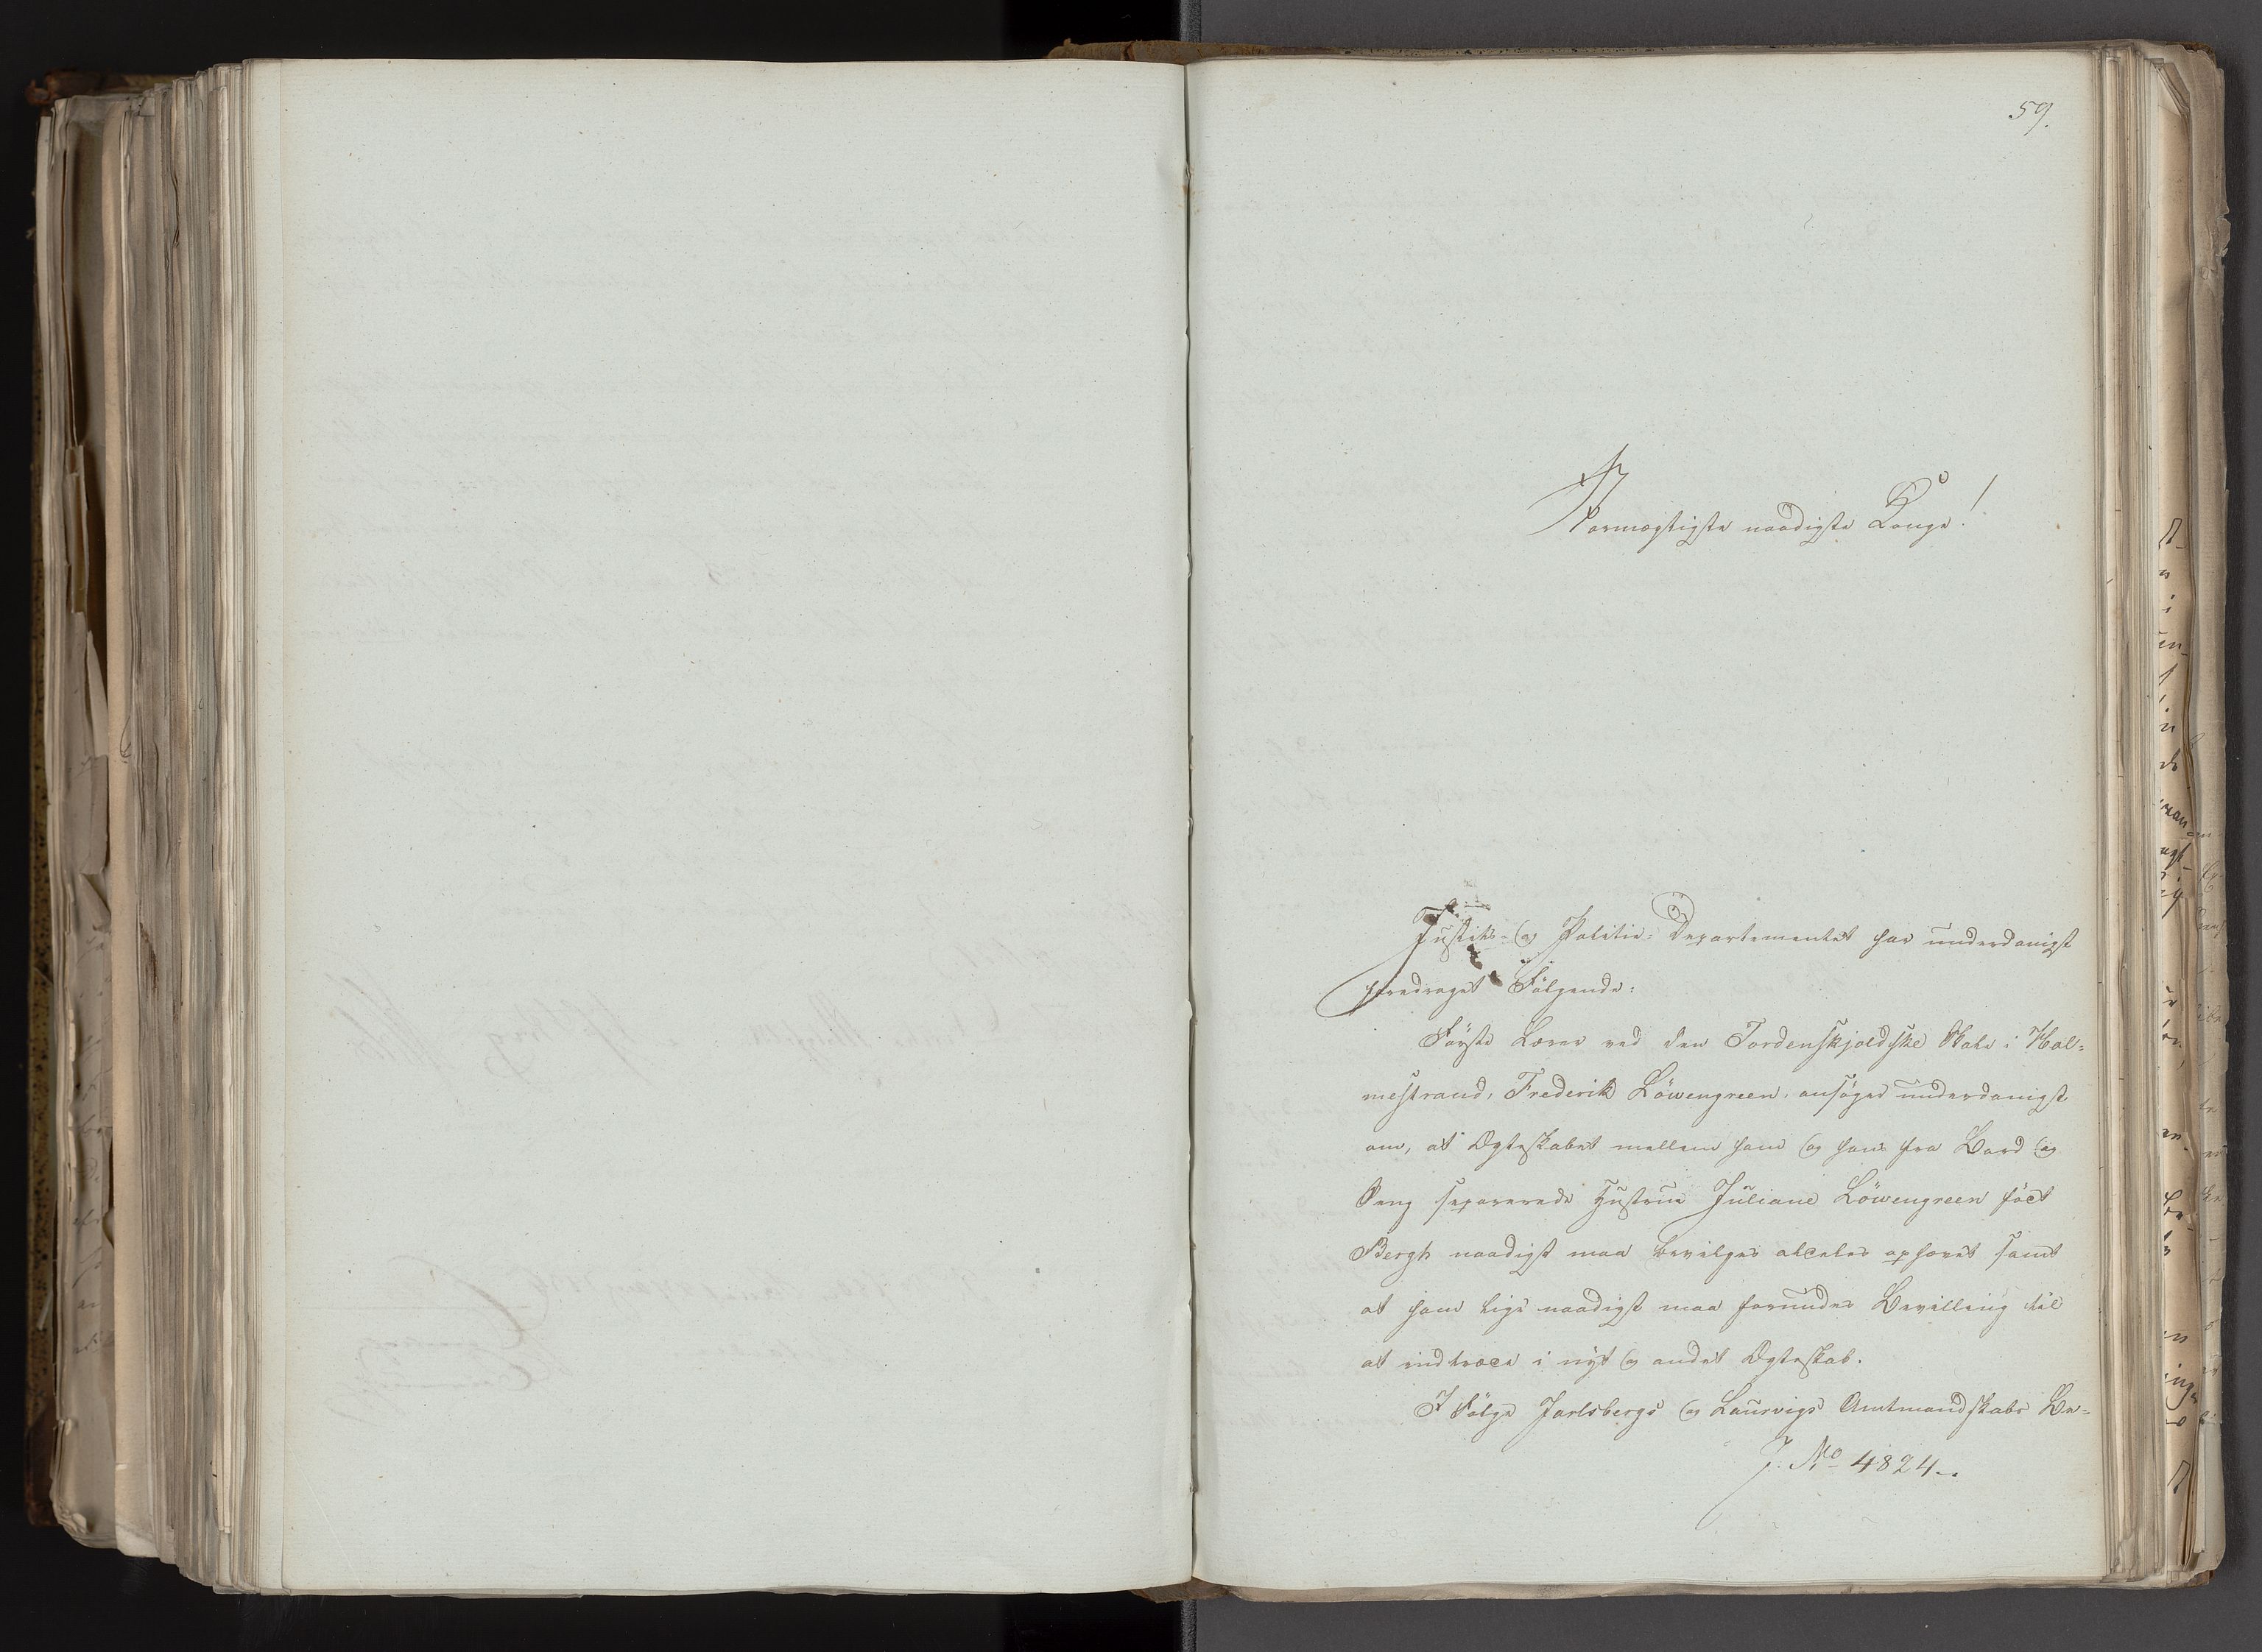 59.
Stormægtigste naadigste Konge!
Justits- og Politie-Departementet har underdanigst
foredraget Følgende:
Første Lærer ved den Tordenskjoldske Skole i Hol-
mestrand, Frederik Löwengreen, ansøger underdanigst
om, at Ægteskabet mellem ham og hans fra Bord og
Seng separerede Hustrue Juliane Löwengreen født
Bergh naadigst maa bevilges aldeles ophævet samt
at ham lige naadigst maa forundes Bevilling til
at indtræde i nyt og andet Ægteskab.
I Følge Jarlsbergs og Laurvigs Amtmandskabs Be-
J. No 4824.